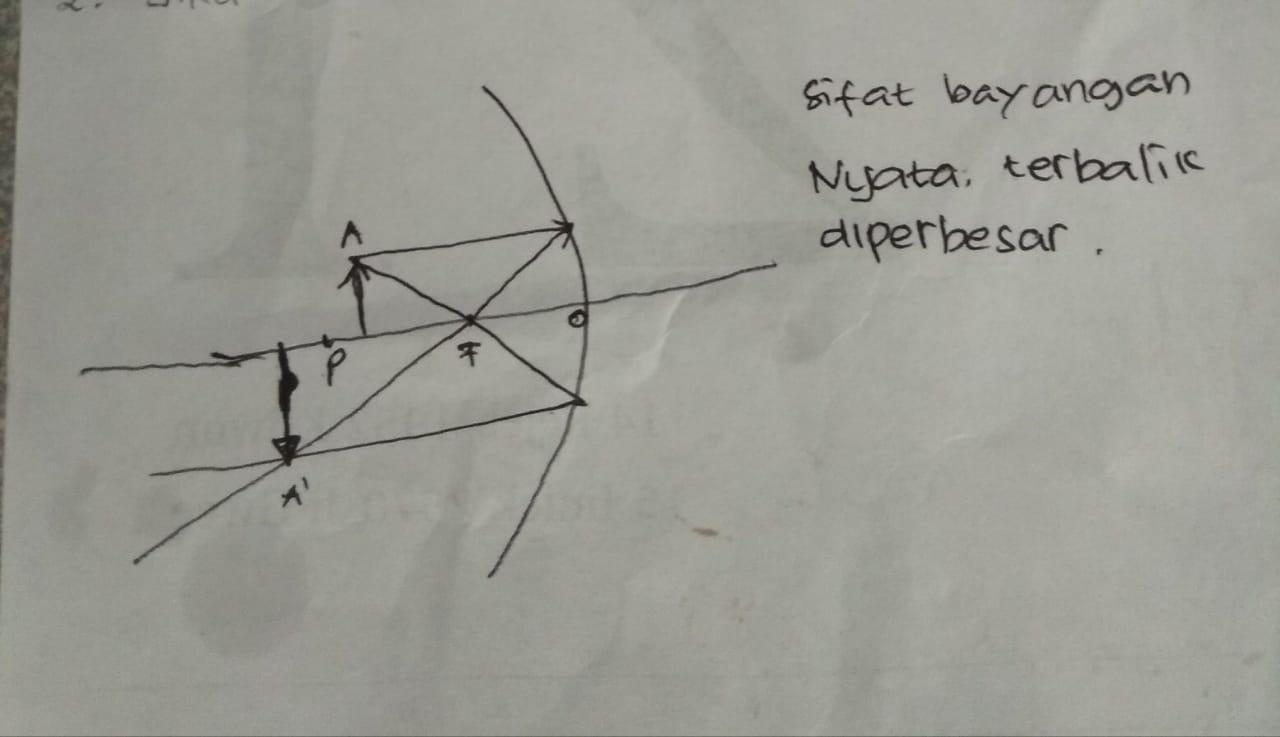 Sifat bayangan
Nyata, terbalik
diperbesar.
A
P
F
O
A'